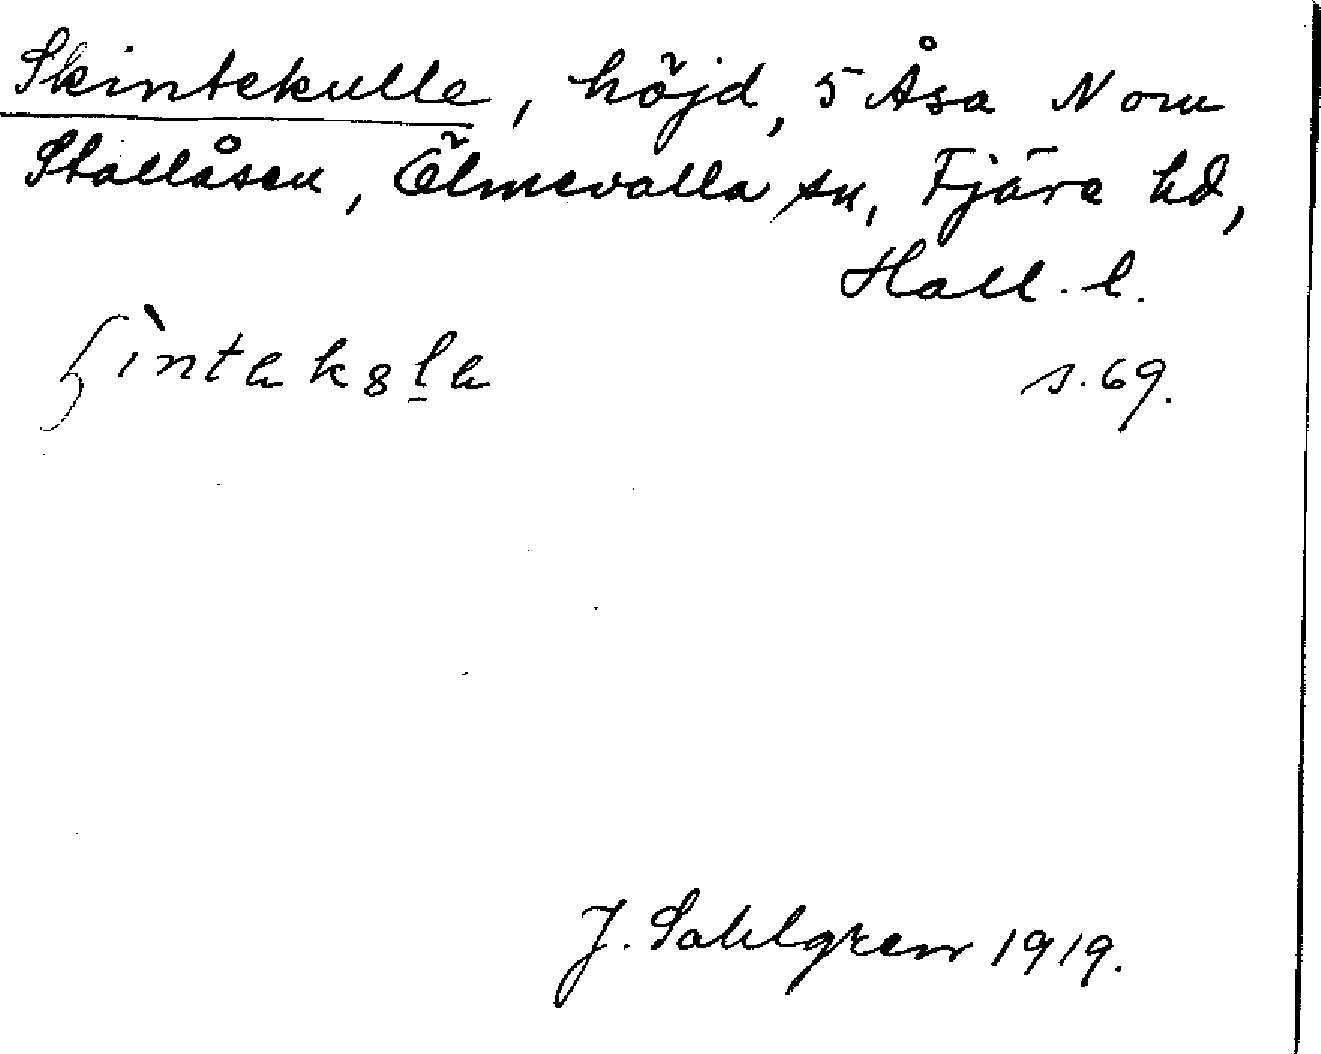 Skintekulle, höjd, 5 Åsa N om
Stallåsen, Ölmevalla sn, Fjäre hd,
Hall. l.
s. 69.
J. Sahlgren 1919.